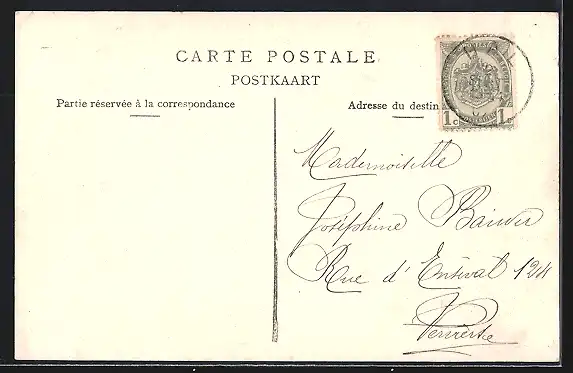 CARTE POSTALE
POSTKAART
Partie réservée à la correspondance
Adresse du destin
1c 1c
Mademoiselle
Joséphine
Rue d'Ensival 124
Verviers